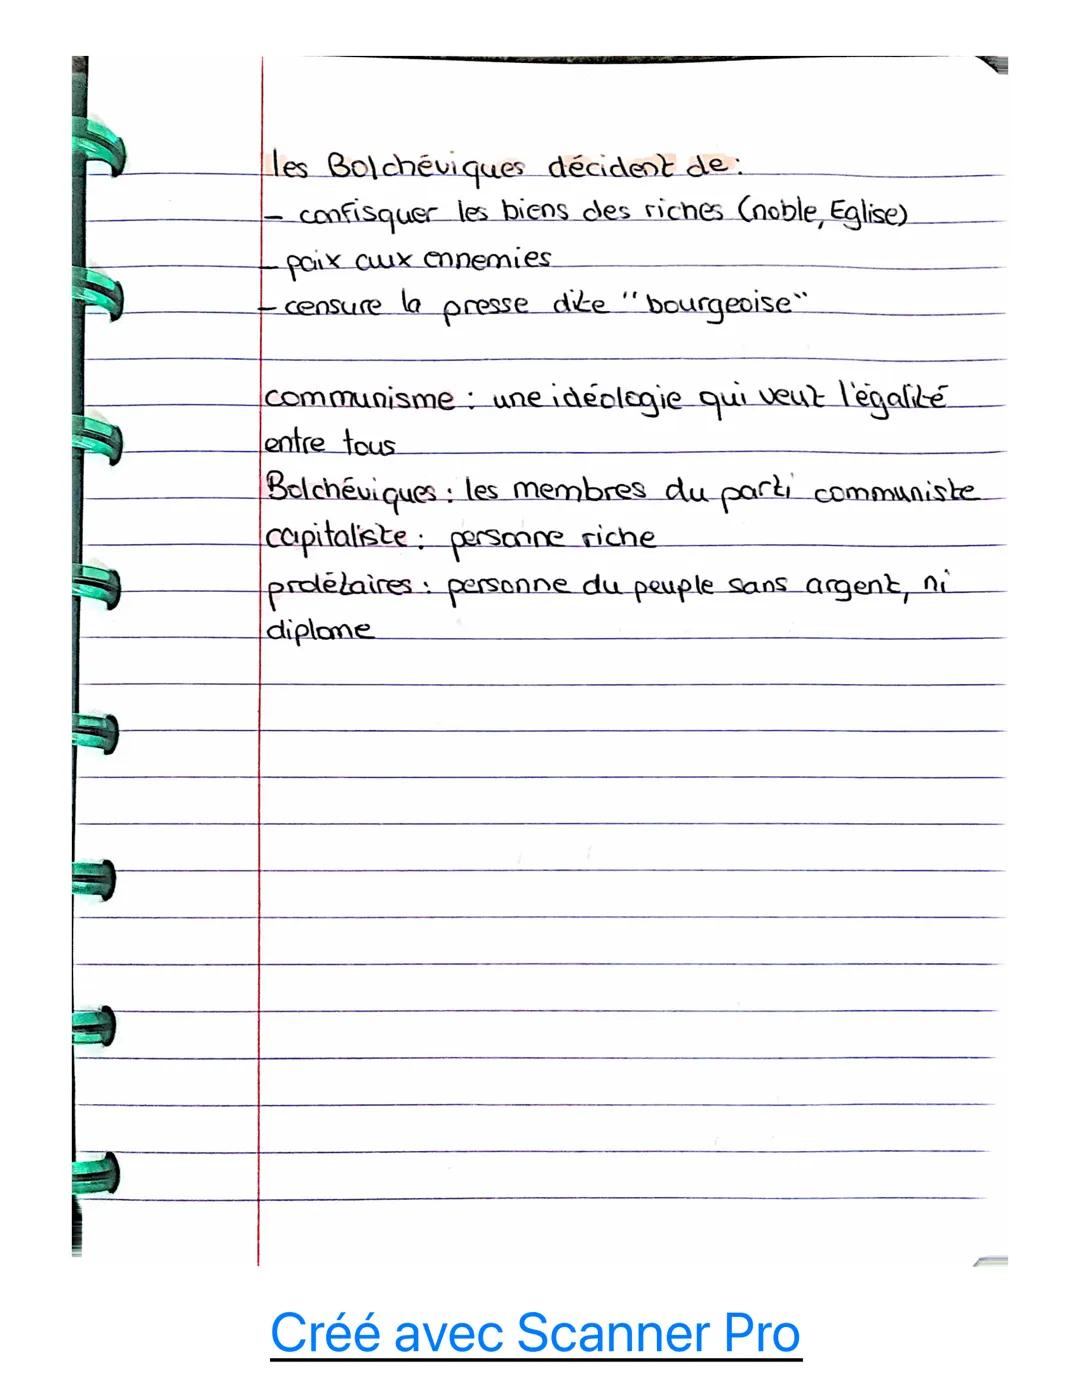 les Bolchéviques décident de :
- confisquer les biens des riches (noble, Eglise)
- paix aux ennemies
- censure la presse dite "bourgeoise"
communisme : une idéologie qui veut l'égalité
entre tous
Bolchéviques : les membres du parti communiste
capitaliste : personne riche
prolétaires : personne du peuple sans argent, ni
diplome
Créé avec Scanner Pro